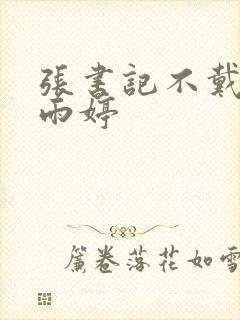 張書記不戴
雨婷
簾卷落花如雪